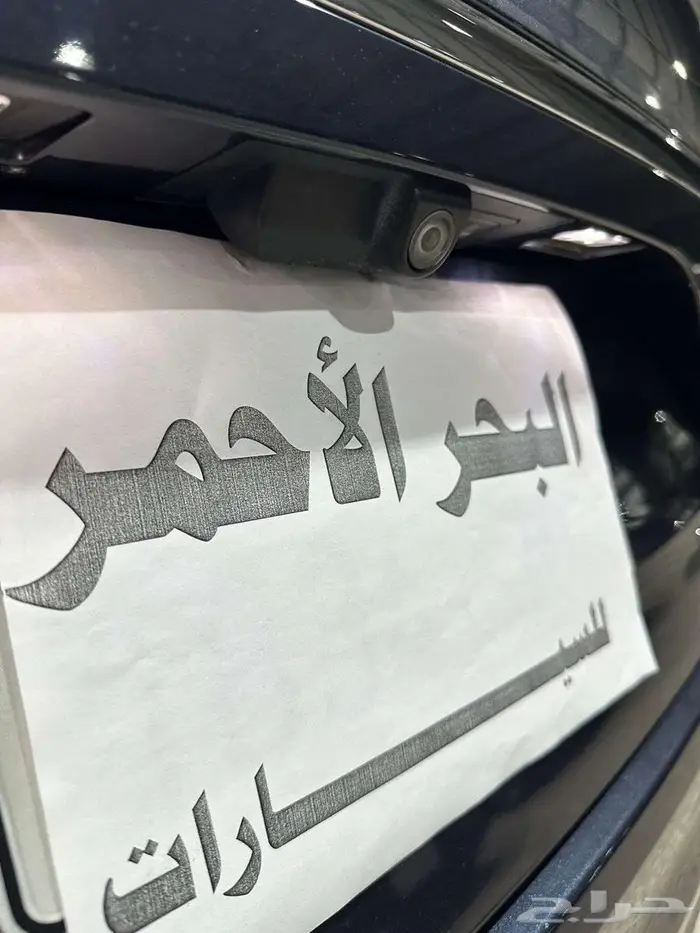 البحر الأحمر
للسيـــــارات
حراج